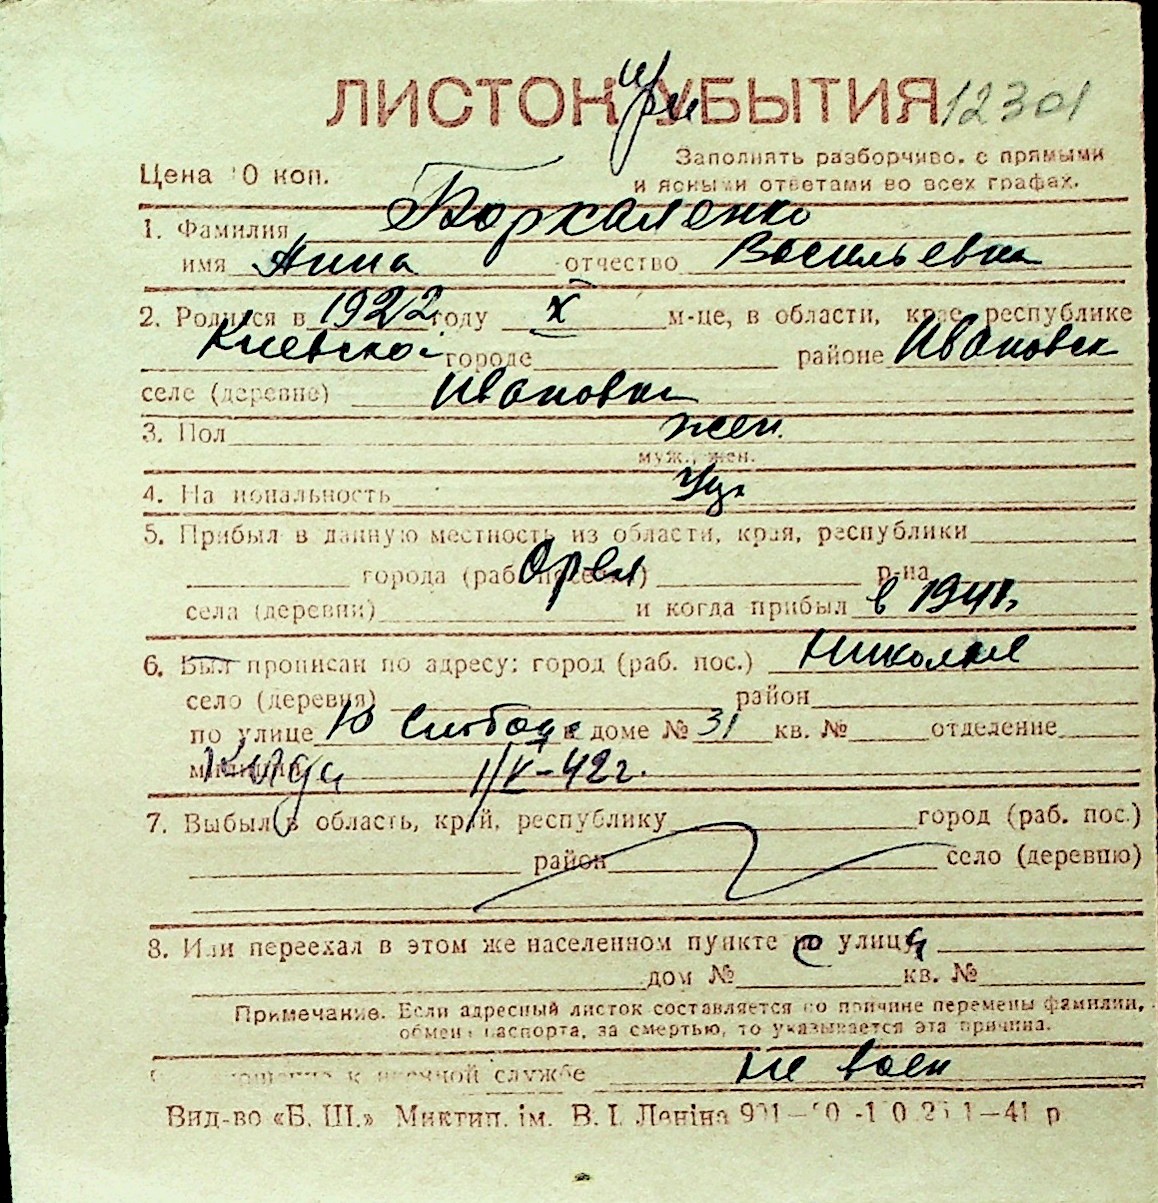 ЛИСТОК УБЫТИЯ 12301
при
Заполнять разборчиво, с прямыми
Цена 10 коп.
и ясными ответами во всех графах.
1. Фамилия Боркаленко
имя Анна отчество Васильевна
2. Родился в 1922 году X м-це, в области, крае, республике
Киевской городе районе Ивановск
селе (деревне) Ивановка
3. Пол жен.
муж., жен.
4. Национальность Укр
5. Прибыл в данную местность из области, края, республики
города (раб. поселка) Орел р-на
села (деревни) и когда прибыл в 1941г.
6. Был прописан по адресу: город (раб. пос.) Николаев
село (деревня) район
по улице Ю Слободс в доме № 31 кв. № отделение
милиции
7. Выбыл в область, край, республику город (раб. пос.)
район село (деревню)
8. Или переехал в этом же населенном пункте по улице
дом № кв. №
Примечание. Если адресный листок составляется по причине перемены фамилии,
обмена паспорта, за смертью, то указывается эта причина.
к военной службе не воен
Вид-во «Б. Ш.» Миктип. ім. В. І. Леніна